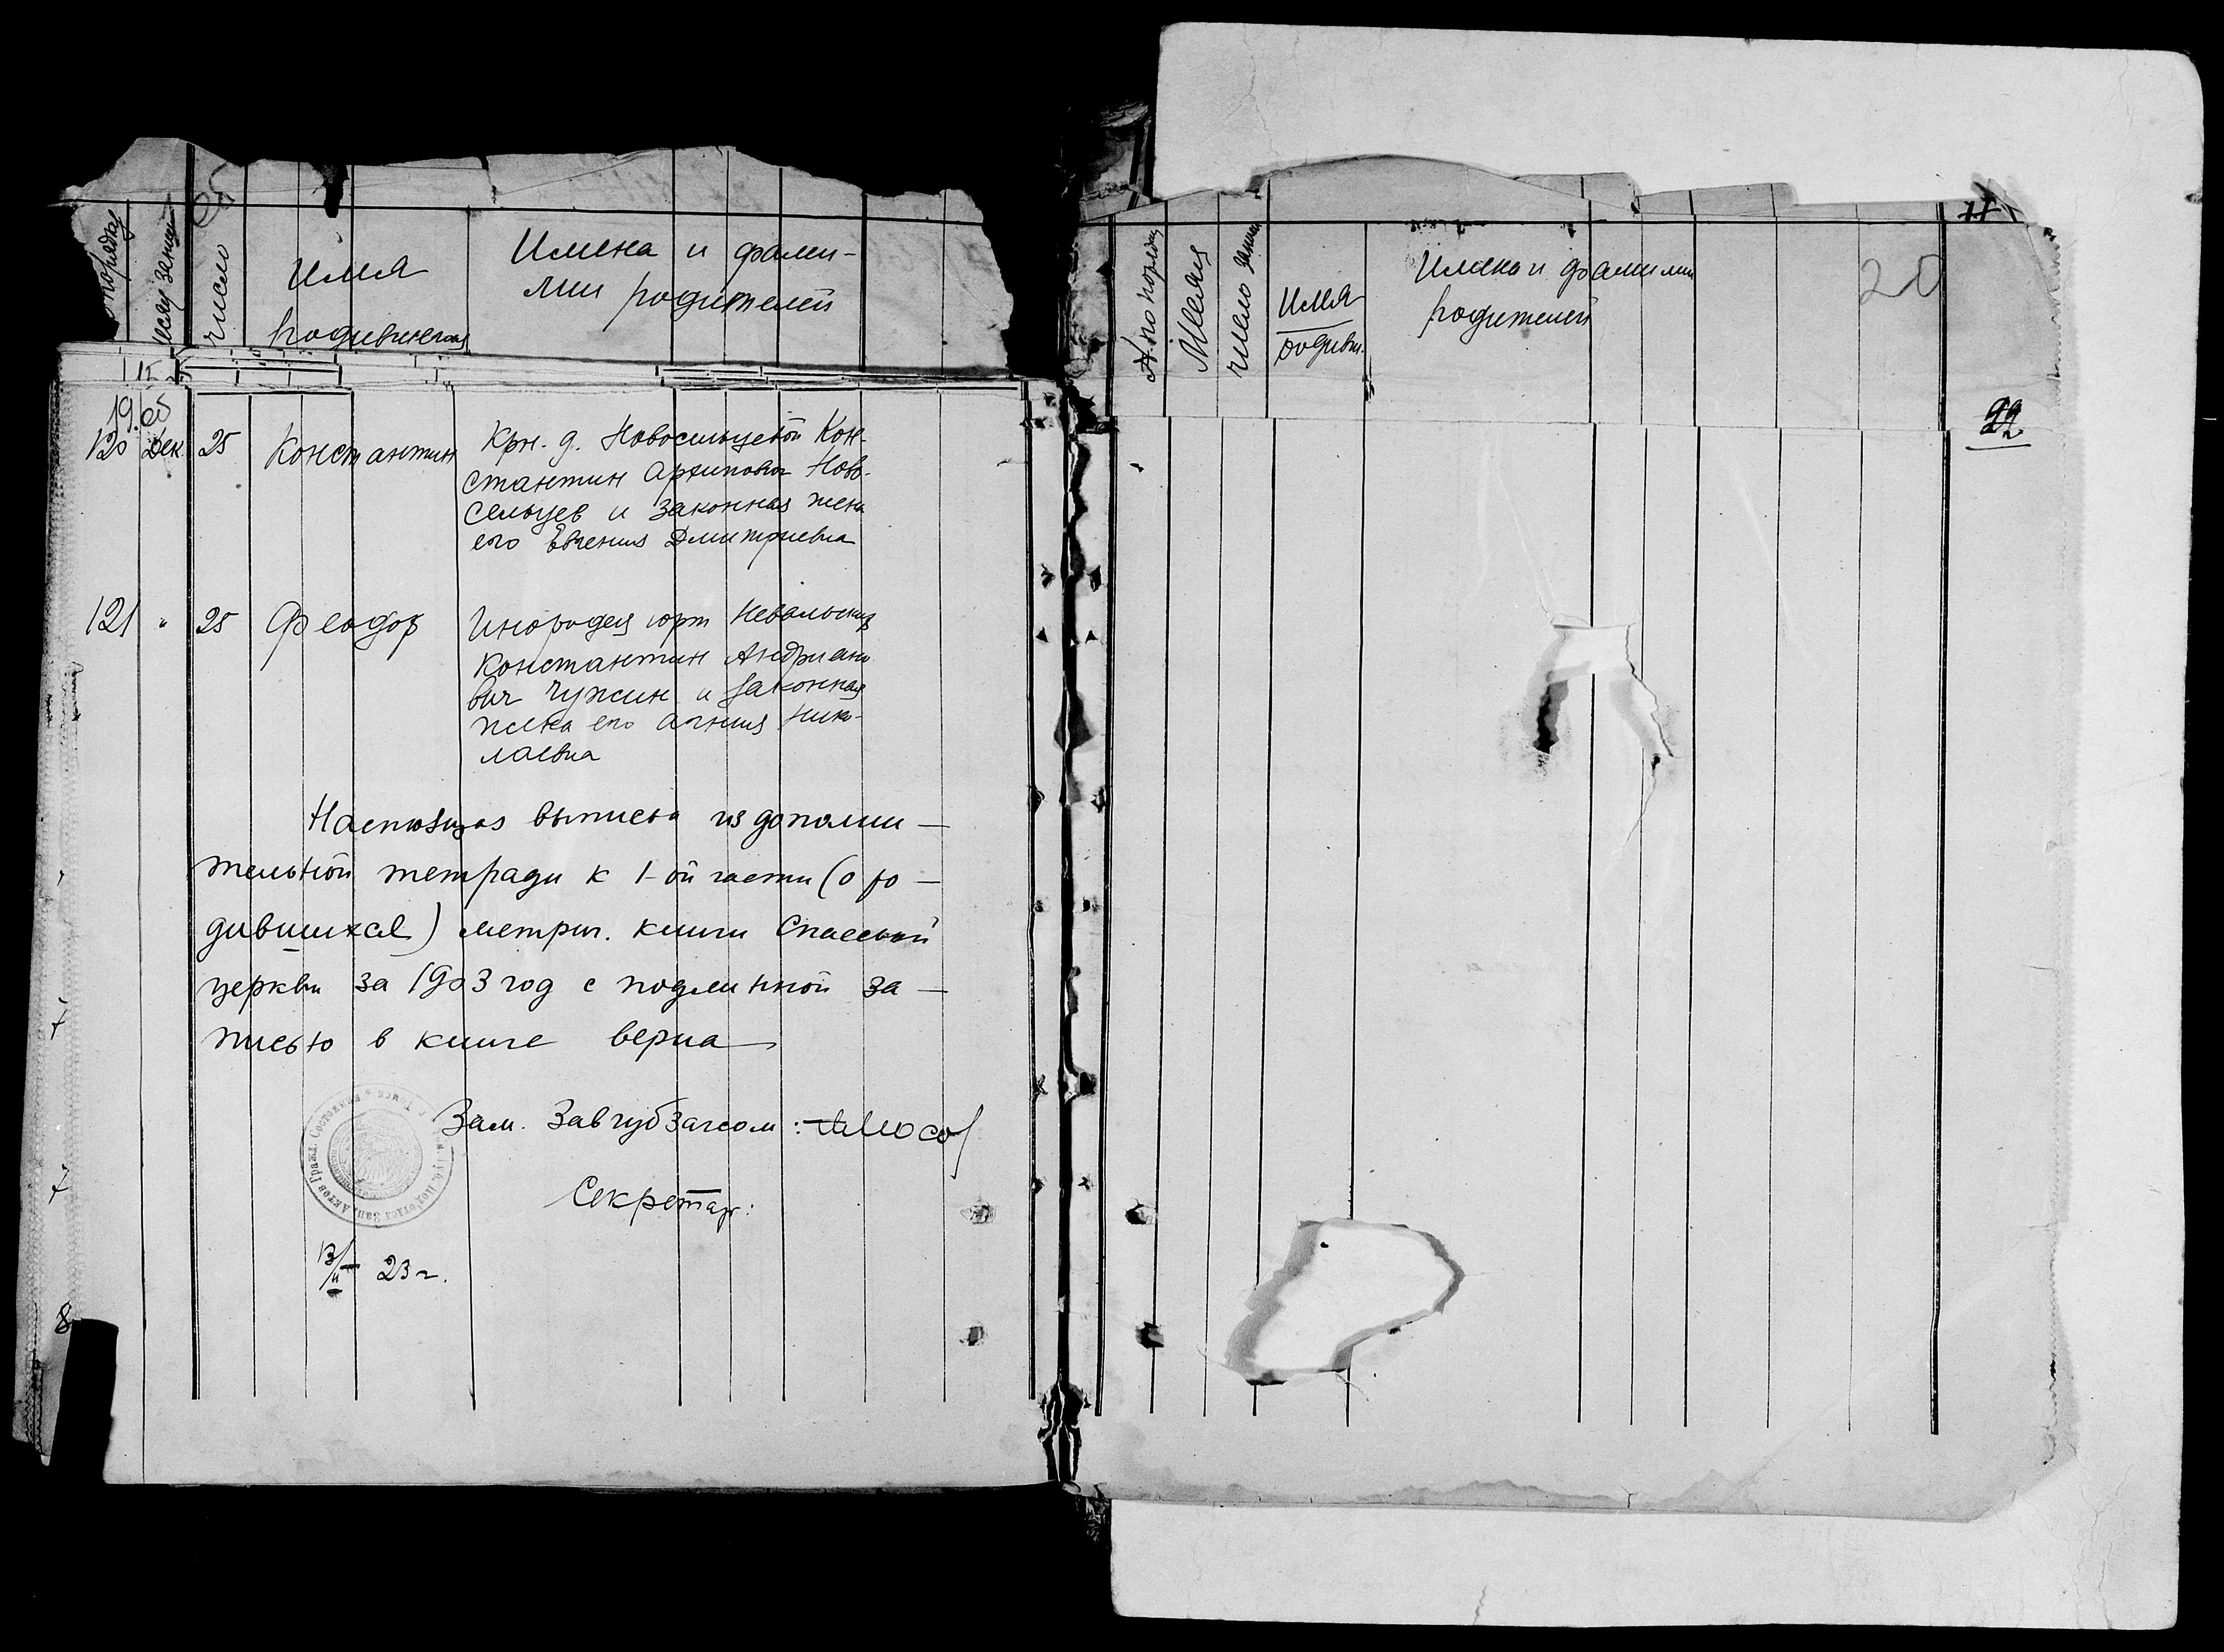 порядку
месяц
число
имя
родившегося
Имена и фами-
лии родителей
120 Дек. 25 Константин Крн. д. Новосельцевой Кон-
стантин Архипович Ново-
сельцев и законная жена
его Евгения Дмитриевна
121 " 25 Феодор Инородец юрт
Константин Андриано
вич Чужин и законная
жена его Агния Нико-
лаевна
Настоящая выписка из дополни-
тельной тетради к 1-ой части (о ро-
дившихся) метрич. книги Спасской
церкви за 1903 год с подлинной за-
писью в книге верна
Зам. Завгубзагсом:
Секретарь:
23 г.
№ по порядку
Месяц
число
Имя
родивш.
Имена и фамилии
родителей
20
22